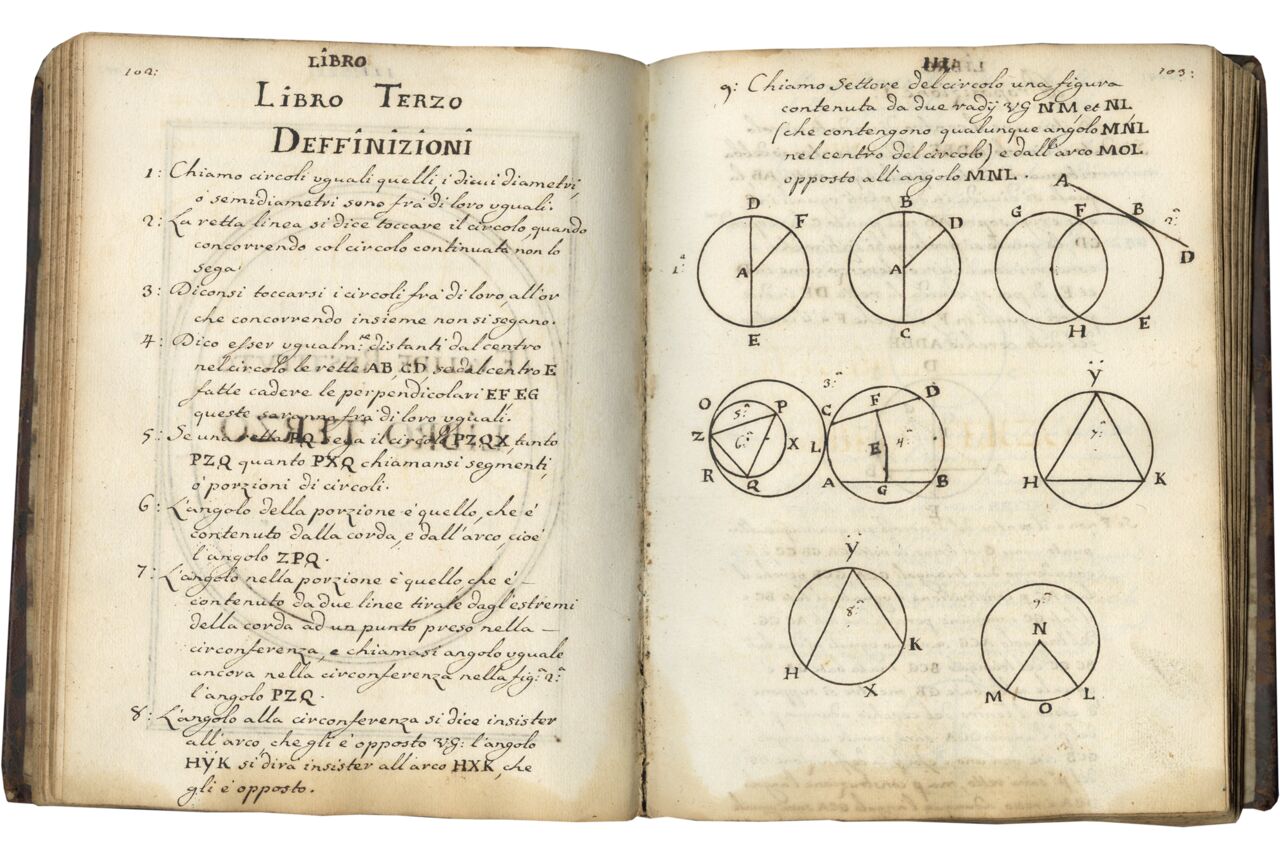 102:
LIBRO
LIBRO TERZO
DEFFINIZIONI
1: Chiamo circoli vguali quelli i di cui diametri,
ò semidiametri sono frà di loro vguali.
2: La retta linea si dice toccare il circolo, quando
concorrendo col circolo continuata non lo
sega.
3: Diconsi toccarsi i circoli frà di loro, all'or
che concorrendo insieme non si segano.
4: Dico esser vgualm:te distanti dal centro
nel circolo le rette AB, CD se dal centro E
fatte cadere le perpendicolari EF EG
queste saranno frà di loro vguali.
5: Se una retta PQ sega il circolo PZQX, tanto
PZQ quanto PXQ chiamansi segmenti,
ò porzioni di circoli.
6: L'angolo della porzione è quello, che è
contenuto dalla corda, e dall'arco, cioè
l'angolo ZPQ.
7: L'angolo nella porzione è quello che è –
contenuto da due linee tirate dagl'estremi
della corda ad un punto preso nella –
circonferenza, e chiamasi angolo vguale
ancora nella circonferenza nella fig:a 2:a
l'angolo PZQ.
8: L'angolo alla circonferenza si dice insister
all'arco, che gli è opposto VG: l'angolo
HŸK si dirà insister all'arco HXK, che
gli è opposto.
III
103:
9: Chiamo Settore del circolo una figura
contenuta da due radÿ VG NM et NL
(che contengono qualunque angolo MNL
nel centro del circolo) e dall'arco MOL
opposto all'angolo MNL.
D F A E 1:a
B D A C
A G F B 2:a D H E
O 5:a P Z 6:a X R Q
3:a C F D L E 4:a A G B
Ÿ 7:a H K
Ÿ 8:a K H X
9:a N M L O